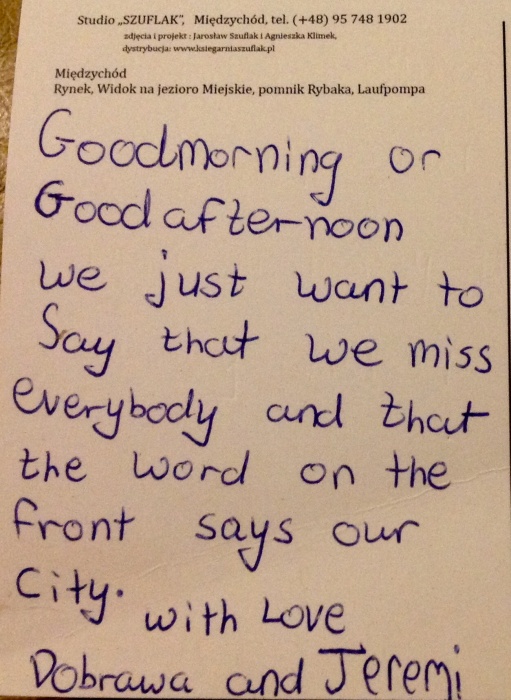 Studio „SZUFLAK”, Międzychód, tel. (+48) 95 748 1902
zdjęcia i projekt : Jarosław Szuflak i Agnieszka Klimek,
dystrybucja: www.ksiegarniaszuflak.pl
Międzychód
Rynek, Widok na jezioro Miejskie, pomnik Rybaka, Laufpompa
Goodmorning or
Good afternoon
we just want to
Say that we miss
everybody and that
the word on the
front says our
City.
with Love
Dobrawa and Jeremi